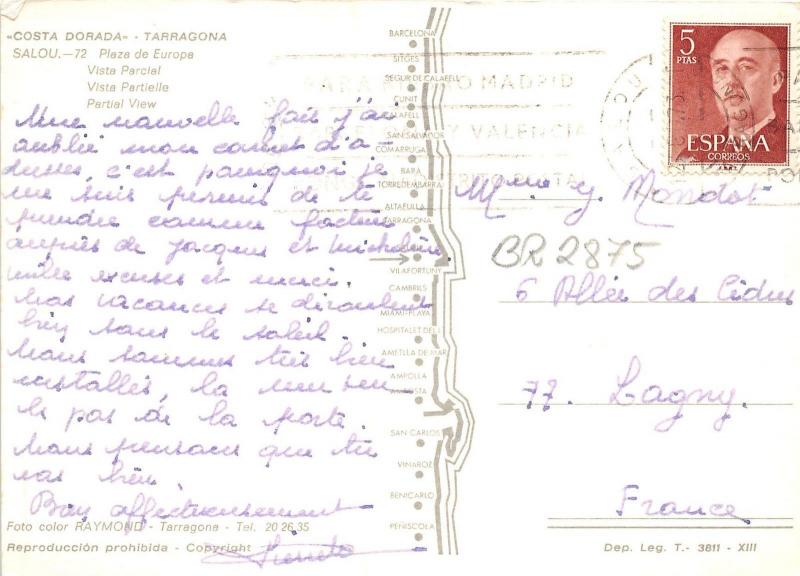 «COSTA DORADA» - TARRAGONA
SALOU.—72 Plaza de Europa
Vista Parcial
Vista Partielle
Partial View
Une nouvelle fois j'ai
oublié mon carnet d'a-
dresses, c'est pourquoi je
me suis permis de te
prendre comme facteur
auprès de Jacques et Micheline.
mille excuses et merci.
Nos vacances se déroulent
bien sous le soleil.
Nous sommes très bien
installés, la mer seu-
le pas de la porte.
Nous pensons que tu
vas bien.
Bien affectueusement
Foto color RAYMOND - Tarragona - Tel. 20 26 35
Reproducción prohibida - Copyright
BARCELONA
SITGES
SEGUR DE CALAFELL
CUNIT
CALAFELL
SAN SALVADOR
COMARRUGA
BARA
TORREDEMBARRA
ALTAFULLA
TARRAGONA
VILAFORTUNY
CAMBRILS
MIAMI-PLAYA
HOSPITALET DEL I.
AMETLLA DE MAR
AMPOLLA
SAN CARLOS
VINAROZ
BENICARLO
PEÑISCOLA
5
PTAS
ESPAÑA
CORREOS
MADRID
Y VALENCIA
Mme y. Mondot
BR 2875
6 Allée des Cèdres
77. Lagny.
France
Dep. Leg. T.- 3811 - XIII